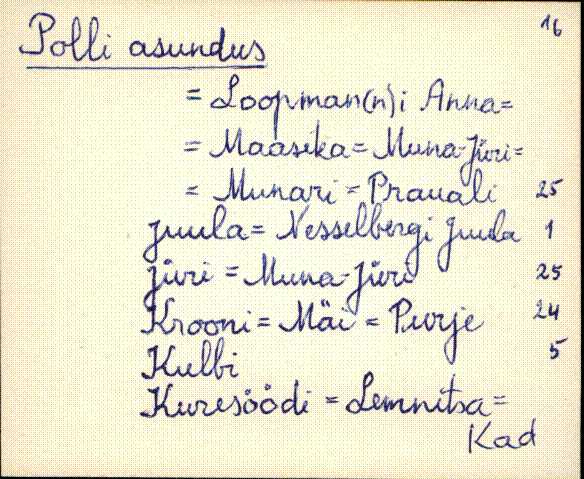 16
Polli asundus
= Loopman(n)i Anna=
= Maasika = Muna-Jüri=
= Munari = Prauali 25
Juula = Nesselbergi Juula 1
Jüri = Muna-Jüri 25
Krooni = Mäi = Purje 24
Kulbi 5
Kuresöödi = Lemnitsa =
Kad